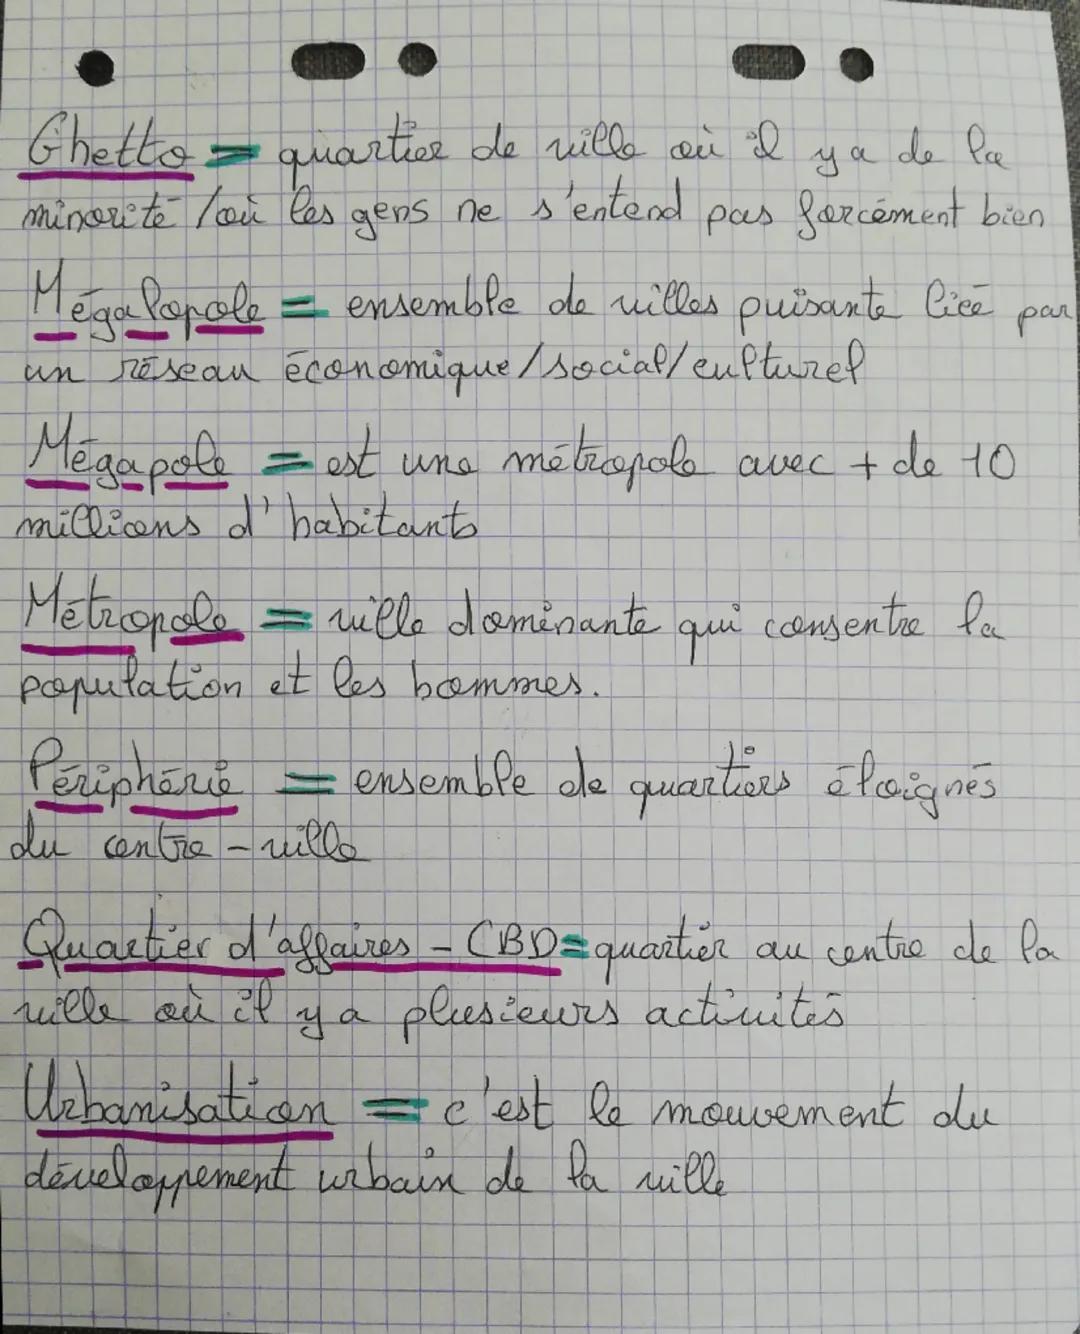 Ghetto = quartier de ville où il y a de la
minorité / où les gens ne s'entend pas forcément bien
Mégalopole = ensemble de villes puisante liée par
un réseau économique/social/culturel
Mégapole = est une métropole avec + de 10
millions d'habitants
Métropole = ville dominante qui consentre la
population et les hommes.
Périphérie = ensemble de quartiers éloignés
du centre-ville
Quartier d'affaires - CBD = quartier au centre de la
ville où il y a plusieurs activités
Urbanisation = c'est le mouvement du
développement urbain de la ville